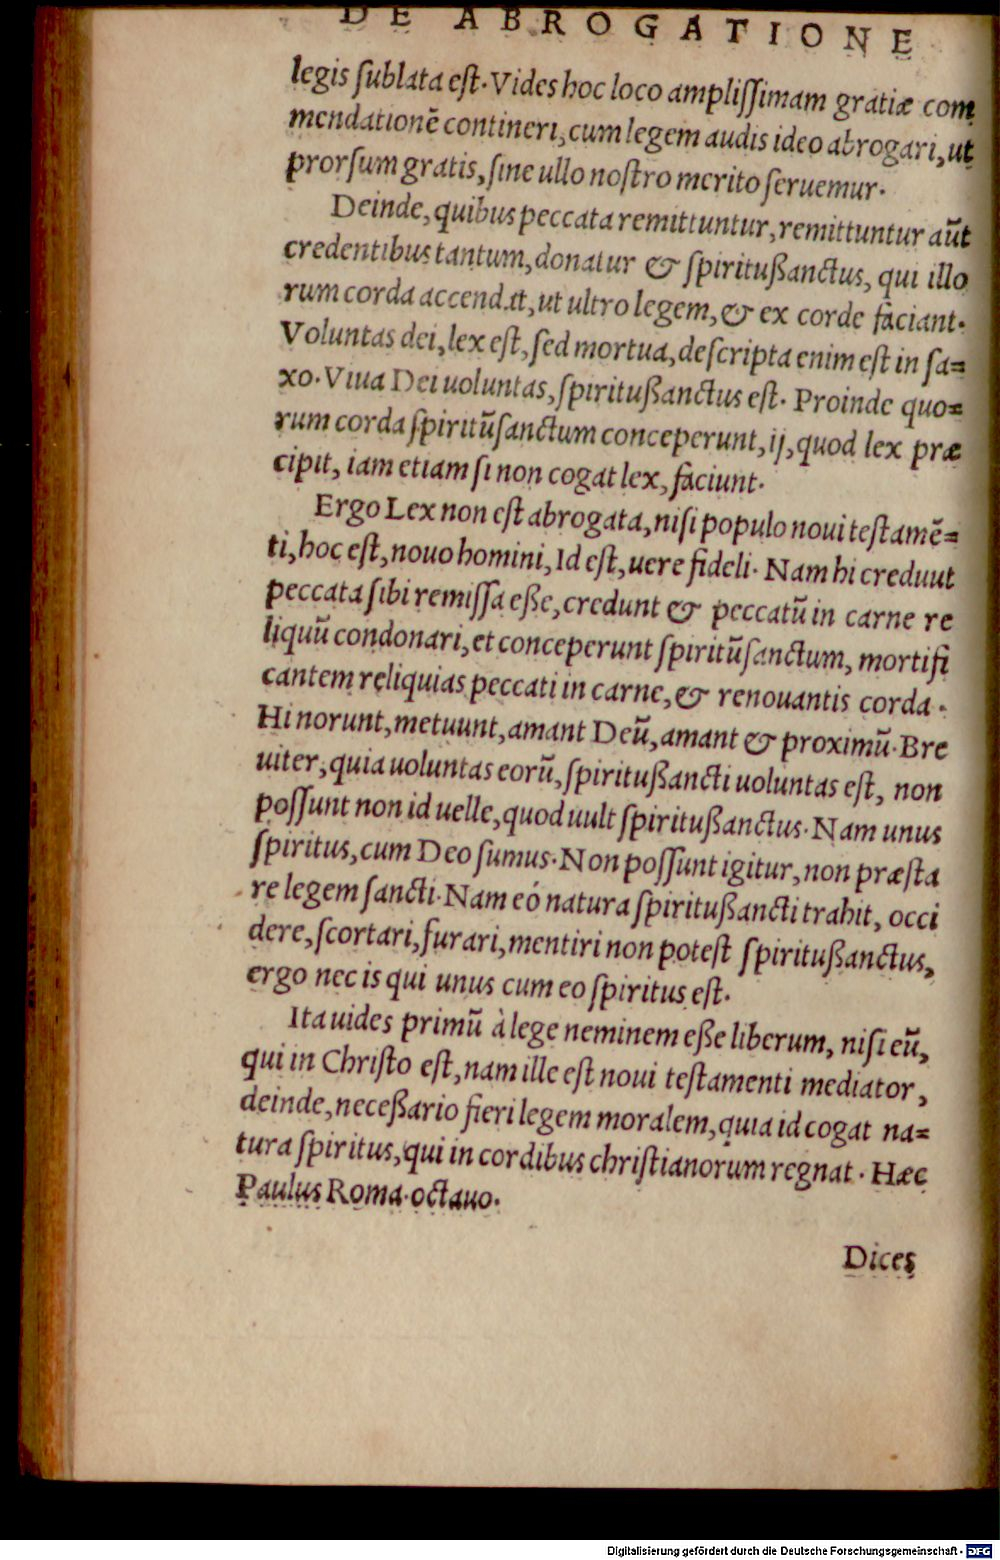 DE ABROGATIONE
legis ſublata eſt. Vides hoc loco ampliſſimam gratiæ com
mendationẽ contineri, cum legem audis ideo abrogari, ut
prorſum gratis, ſine ullo noſtro merito ſeruemur.
Deinde, quibus peccata remittuntur, remittuntur aũt
credentibus tantum, donatur & ſpiritußanctus, qui illo
rum corda accendat, ut ultro legem, & ex corde faciant.
Voluntas dei, lex eſt, ſed mortua, deſcripta enim eſt in ſa=
xo. Viua Dei uoluntas, ſpiritußanctus eſt. Proinde quo=
rum corda ſpiritũſanctum conceperunt, ij, quod lex præ
cipit, iam etiam ſi non cogat lex, faciunt.
Ergo Lex non eſt abrogata, niſi populo noui teſtamẽ=
ti, hoc eſt, nouo homini, Id eſt, uere fideli. Nam hi creduut
peccata ſibi remiſſa eße, credunt & peccatũ in carne re
liquũ condonari, et conceperunt ſpiritũſanctum, mortifi
cantem reliquias peccati in carne, & renouantis corda.
Hi norunt, metuunt, amant Deũ, amant & proximũ. Bre
uiter, quia uoluntas eorũ, ſpiritußancti uoluntas eſt, non
poſſunt non id uelle, quod uult ſpiritußanctus. Nam unus
ſpiritus, cum Deo ſumus. Non poſſunt igitur, non præſta
re legem ſancti. Nam eó natura ſpiritußancti trahit, occi
dere, ſcortari, furari, mentiri non poteſt ſpiritußanctus,
ergo nec is qui unus cum eo ſpiritus eſt.
Ita uides primũ à lege neminem eße liberum, niſi eũ,
qui in Chriſto eſt, nam ille eſt noui teſtamenti mediator,
deinde, neceßario fieri legem moralem, quia id cogat na=
tura ſpiritus, qui in cordibus chriſtianorum regnat. Hæc
Paulus Roma. octauo.
Dices
Digitalisierung gefördert durch die Deutsche Forschungsgemeinschaft - DFG